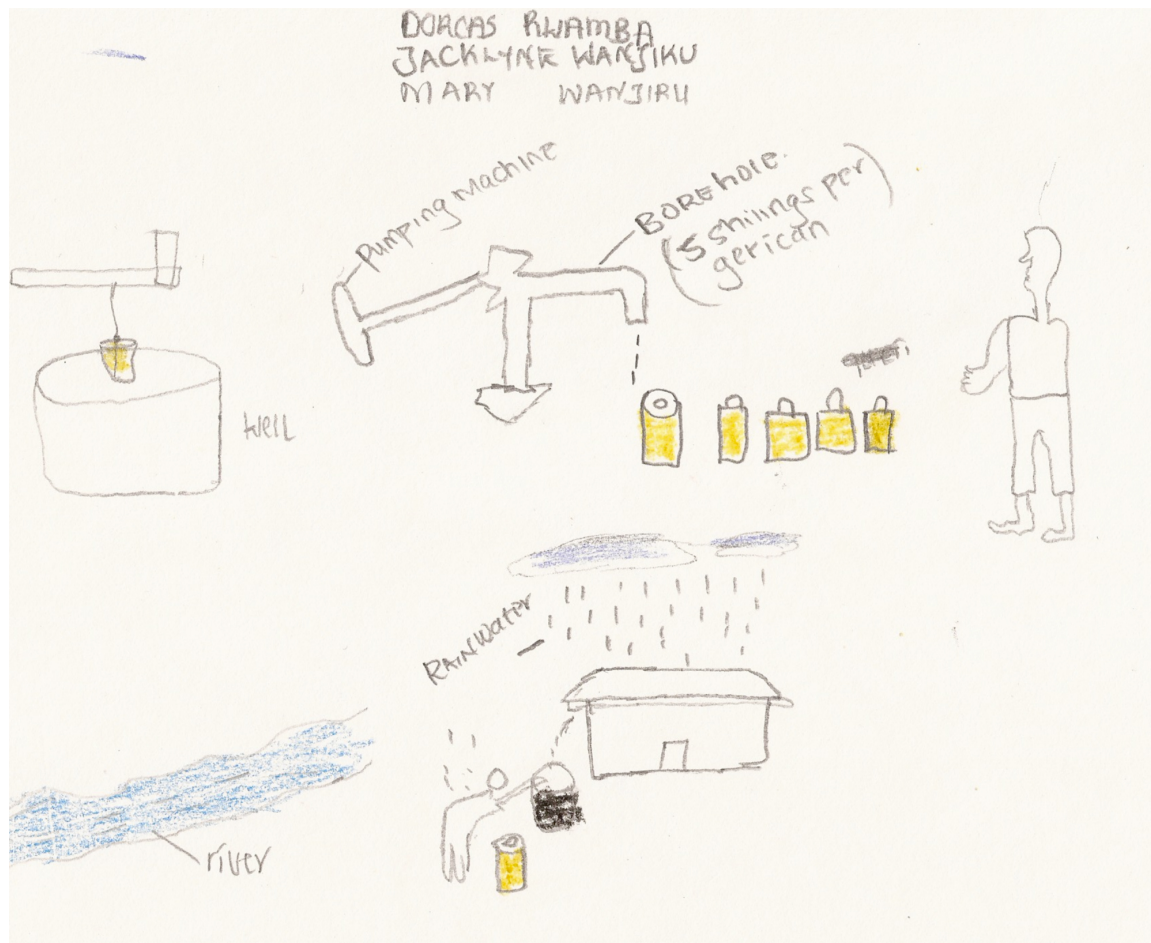 DORCAS RWAMBA
JACKLYNE WANJIKU
MARY WANJIRU
Pumping Machine
BOREhole.
(5 shilings per
gerican)
Well
RAINWater
river